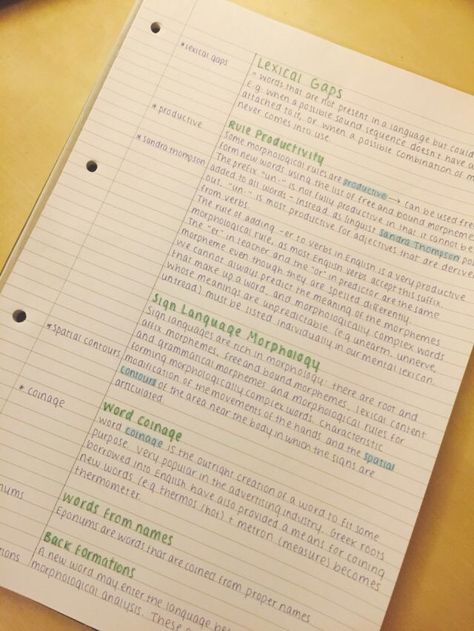 Lexical Gaps
*lexical gaps
- words that are not present in a language but could
E.g. when a possible sound sequence doesn't have
attached to it, or when a possible combination of
never comes into use.
Rule Productivity
*productive
some morphological rules are productive → can be used
form new words using the list of free and bound morpheme
*sandra thompson
The prefix "un-" is not fully productive in that it cannot be
added to all words - instead, as linguist Sandra Thompson
out, "un-" is most productive for adjectives that are
from verbs.
The rule of adding -er to verbs in English is a very productive
morphological rule, as most English verbs accept this suffix.
The "er" in teacher and the "or" in predictor are the same
morpheme even though they are spelled differently.
We cannot always predict the meaning of the morphemes
that make up a word, and morphologically complex words
whose meanings are unpredictable (e.g. unearth, unnerve,
untread) must be listed individually in our mental lexicon.
Sign Language Morphology
Sign languages are rich in morphology: there are root and
affix morphemes, free and bound morphemes, lexical content
and grammatical morphemes and morphological rules for
forming morphologically complex words. Characteristic
*spatial contours
modification of the movements of the hands and the spatial
contours of the area near the body in which the signs are
articulated.
Word Coinage
* coinage
word coinage is the outright creation of a word to fit some
purpose. Very popular in the advertising industry. Greek roots
borrowed into English have also provided a means for coining
new words (e.g. thermos (hot) + metron (measure) becomes
thermometer.
Words from names
Eponyms are words that are coined from proper names
Back Formations
A new word may enter the language
morphological analysis. These